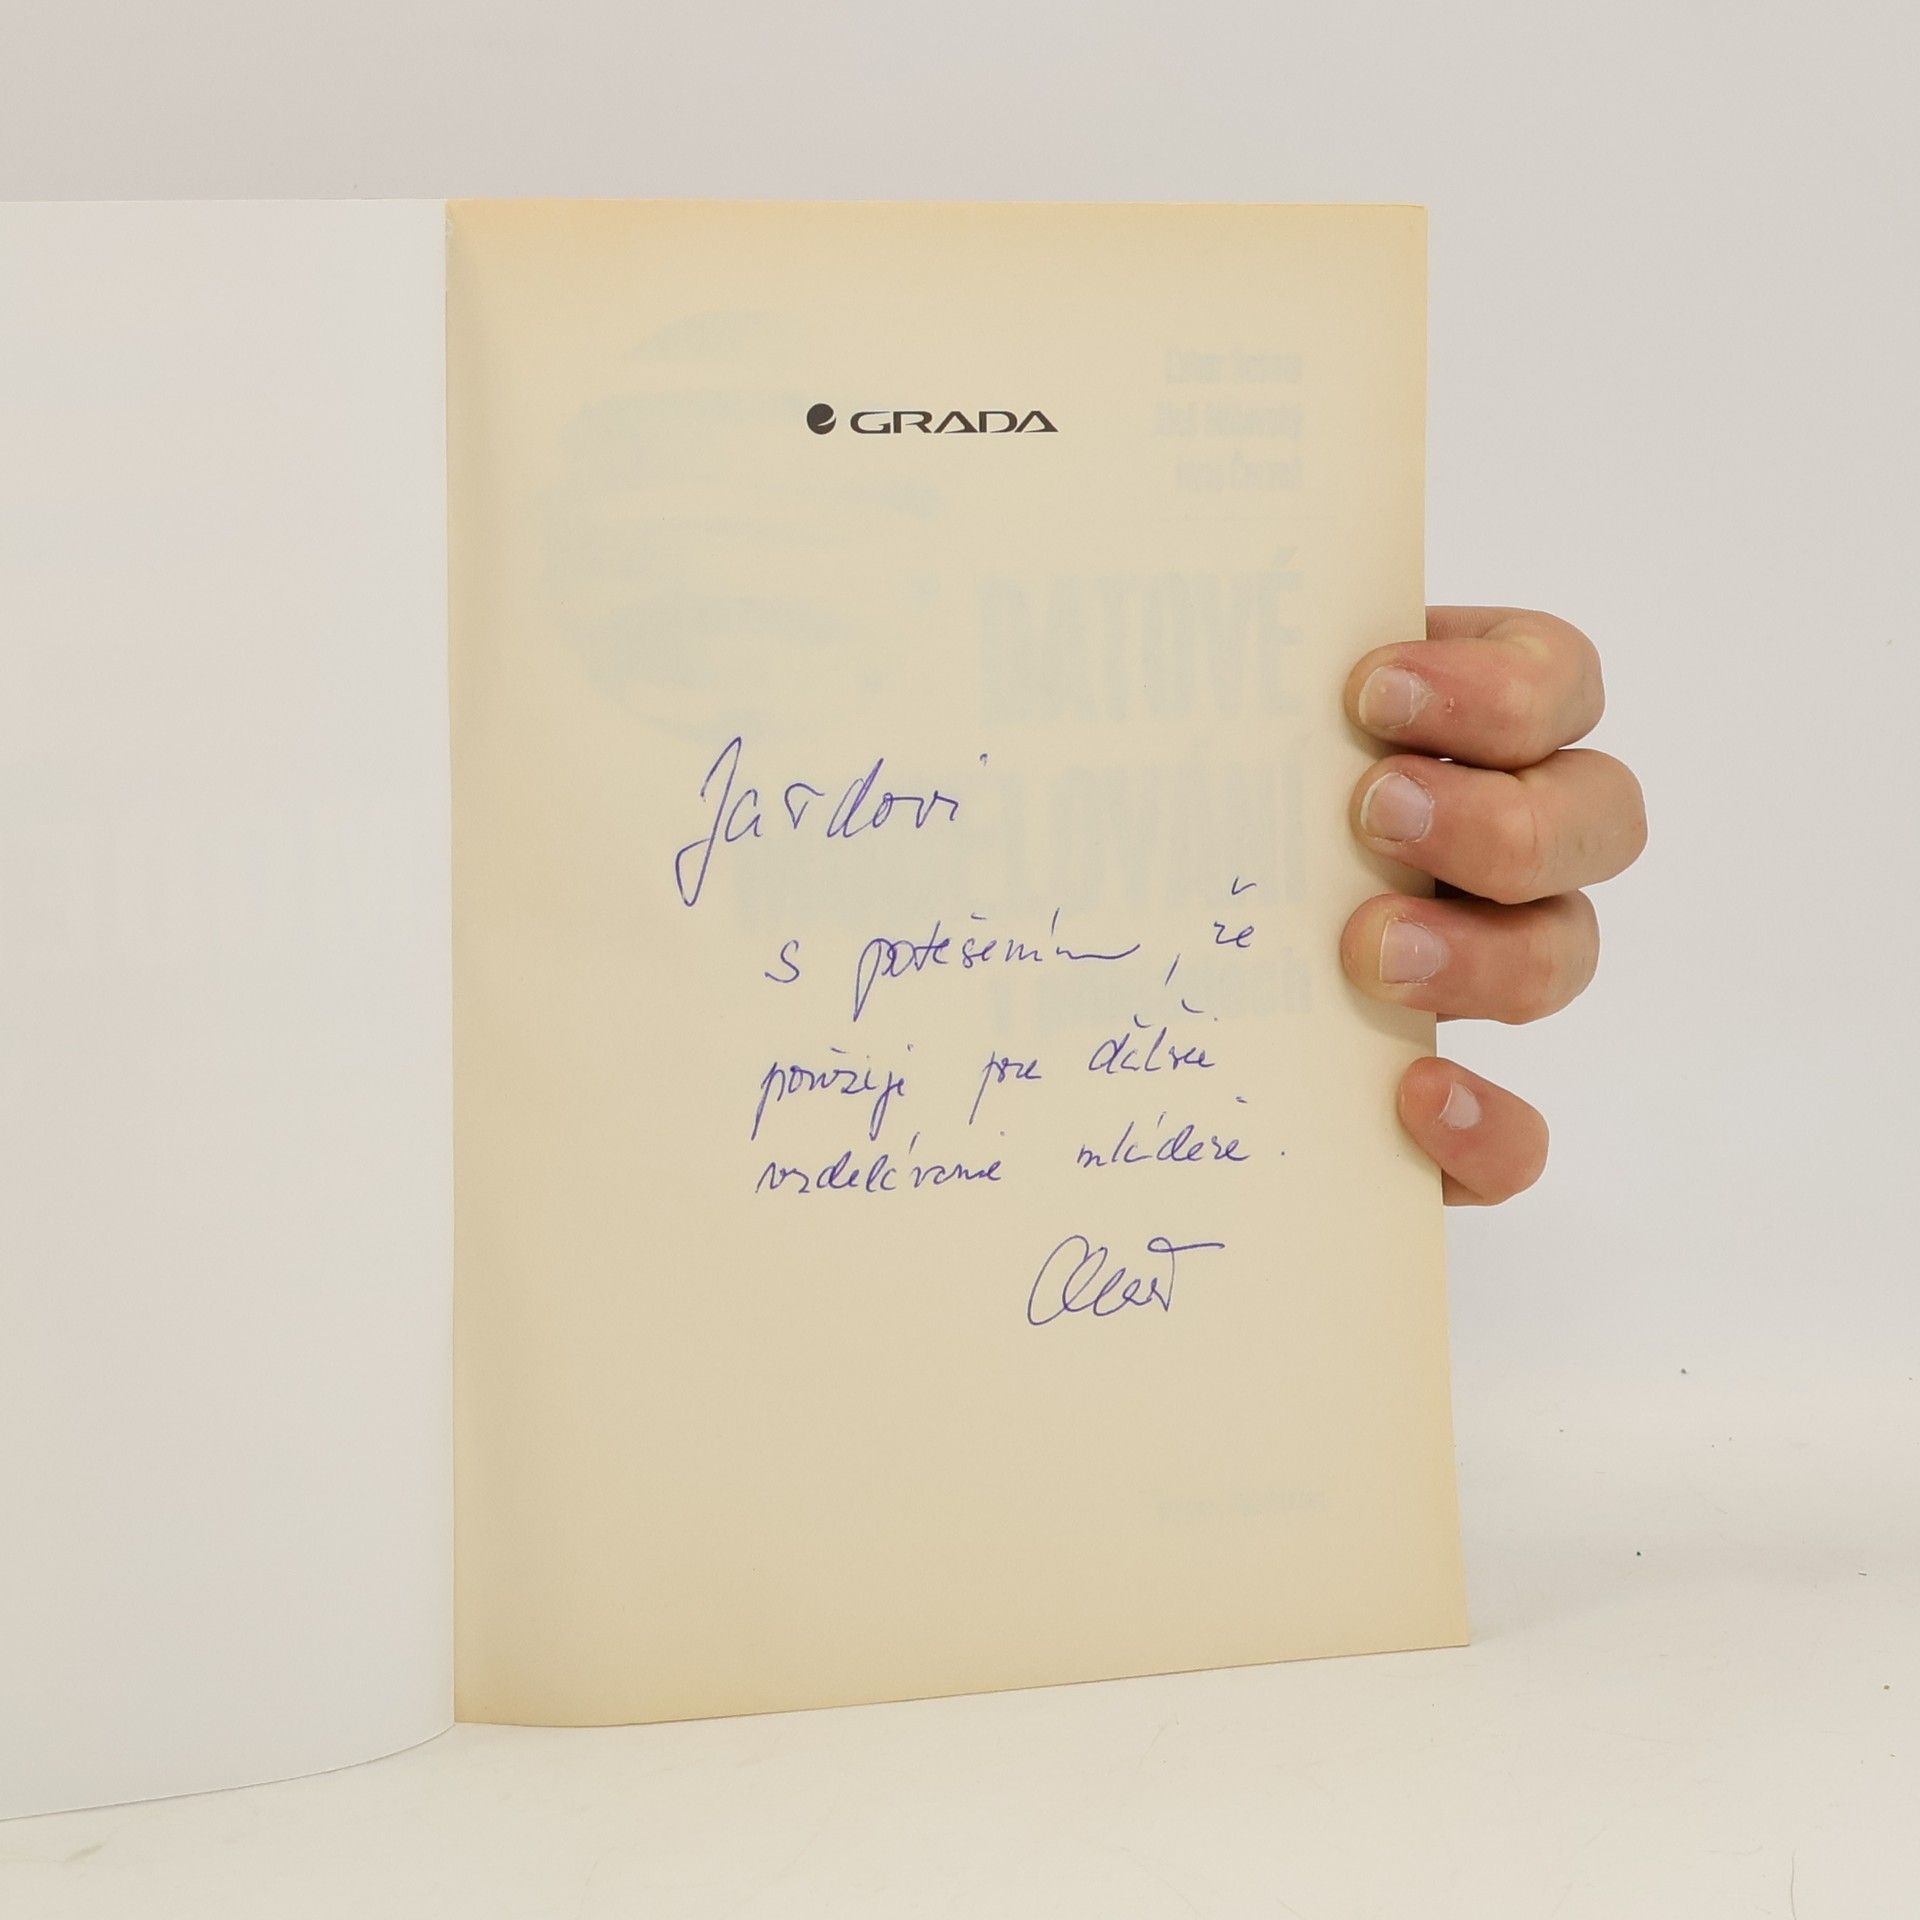 GRADA
Jardovi
s potešením, že
použije pre ďalšie
vzdelávanie mládeže.